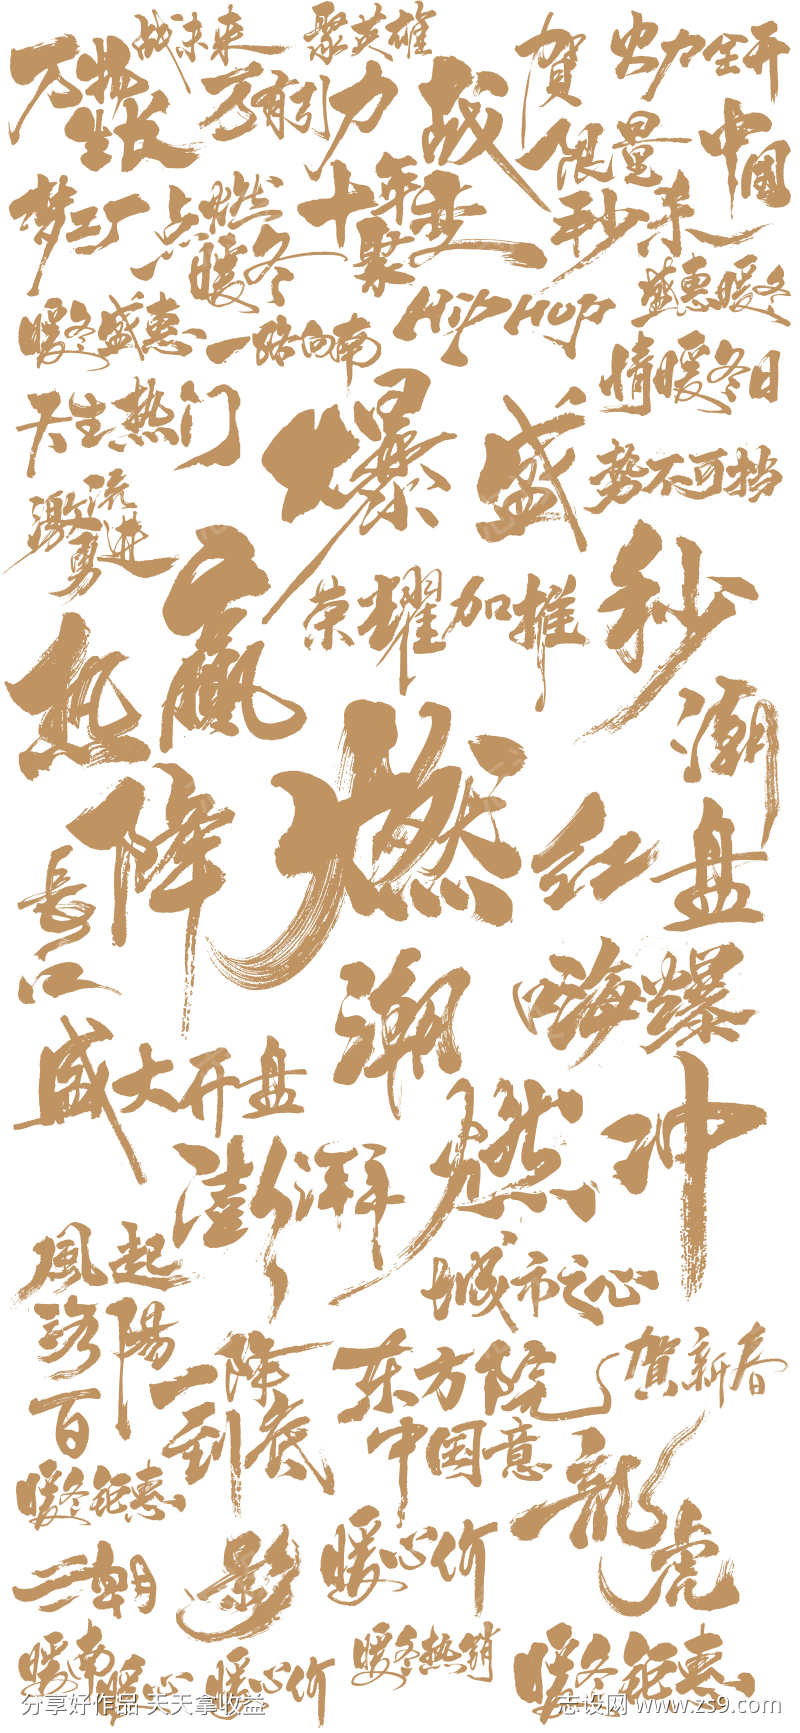 战未来
聚英雄
贺
火力全开
万物
生长
万有引力
战
限量
秒杀
中国
梦工厂
点燃
暖冬
十年
聚变
盛惠暖冬
暖冬盛惠
一路向南
HipHop
情暖冬日
天生热门
爆
盛
势不可挡
激流
勇进
赢
荣耀加推
秒
热
潮
降
燃
红
盘
長
江
潮
嗨爆
盛大开盘
澎湃
燃
冲
風起
洛陽
城市之心
一降
到底
东方院
中国意
贺新春
百
暖冬钜惠
龍
虎
二朝
影
暖心价
暖南
暖心
暖心价
暖冬热销
暖冬钜惠
分享好作品 天天拿收益
志设网 www.zs9.com